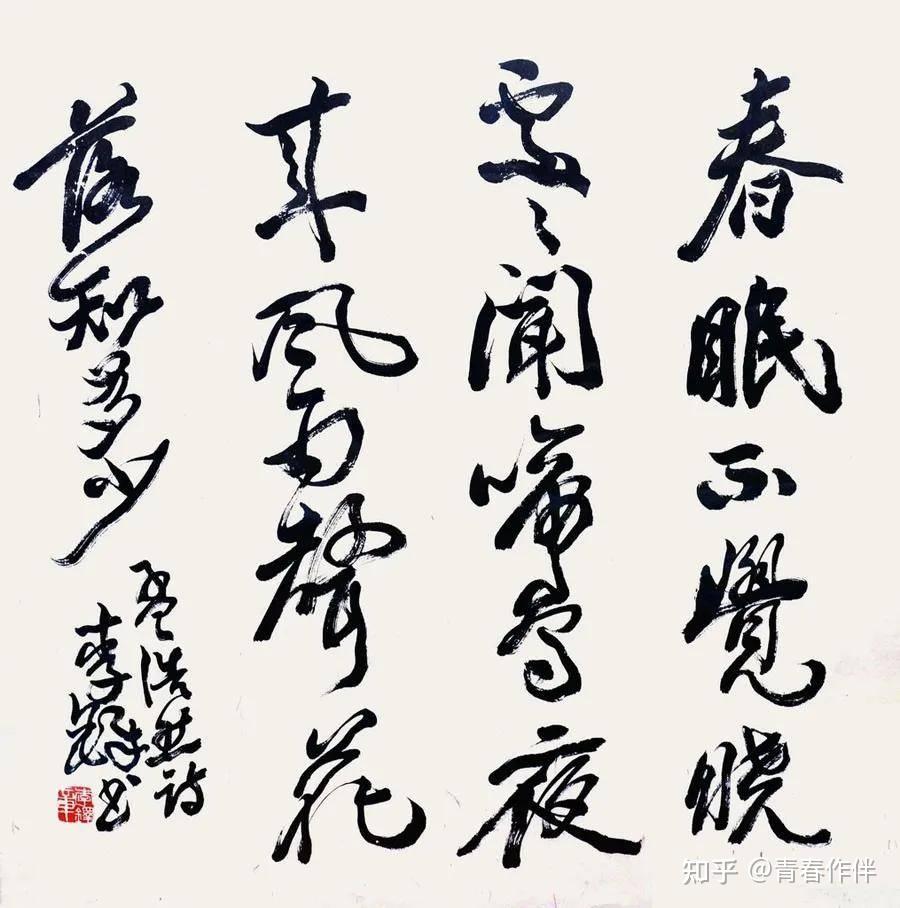 春眠不覺曉
處處聞啼鳥夜
來風雨聲花
落知多少
孟浩然詩
李鐸書
李鐸
知乎 @青春作伴